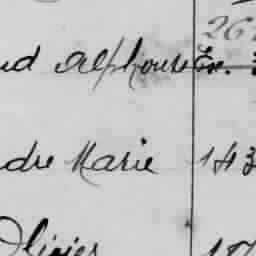 26
ud Alphonse Ex.
dre Marie 143
Olivier